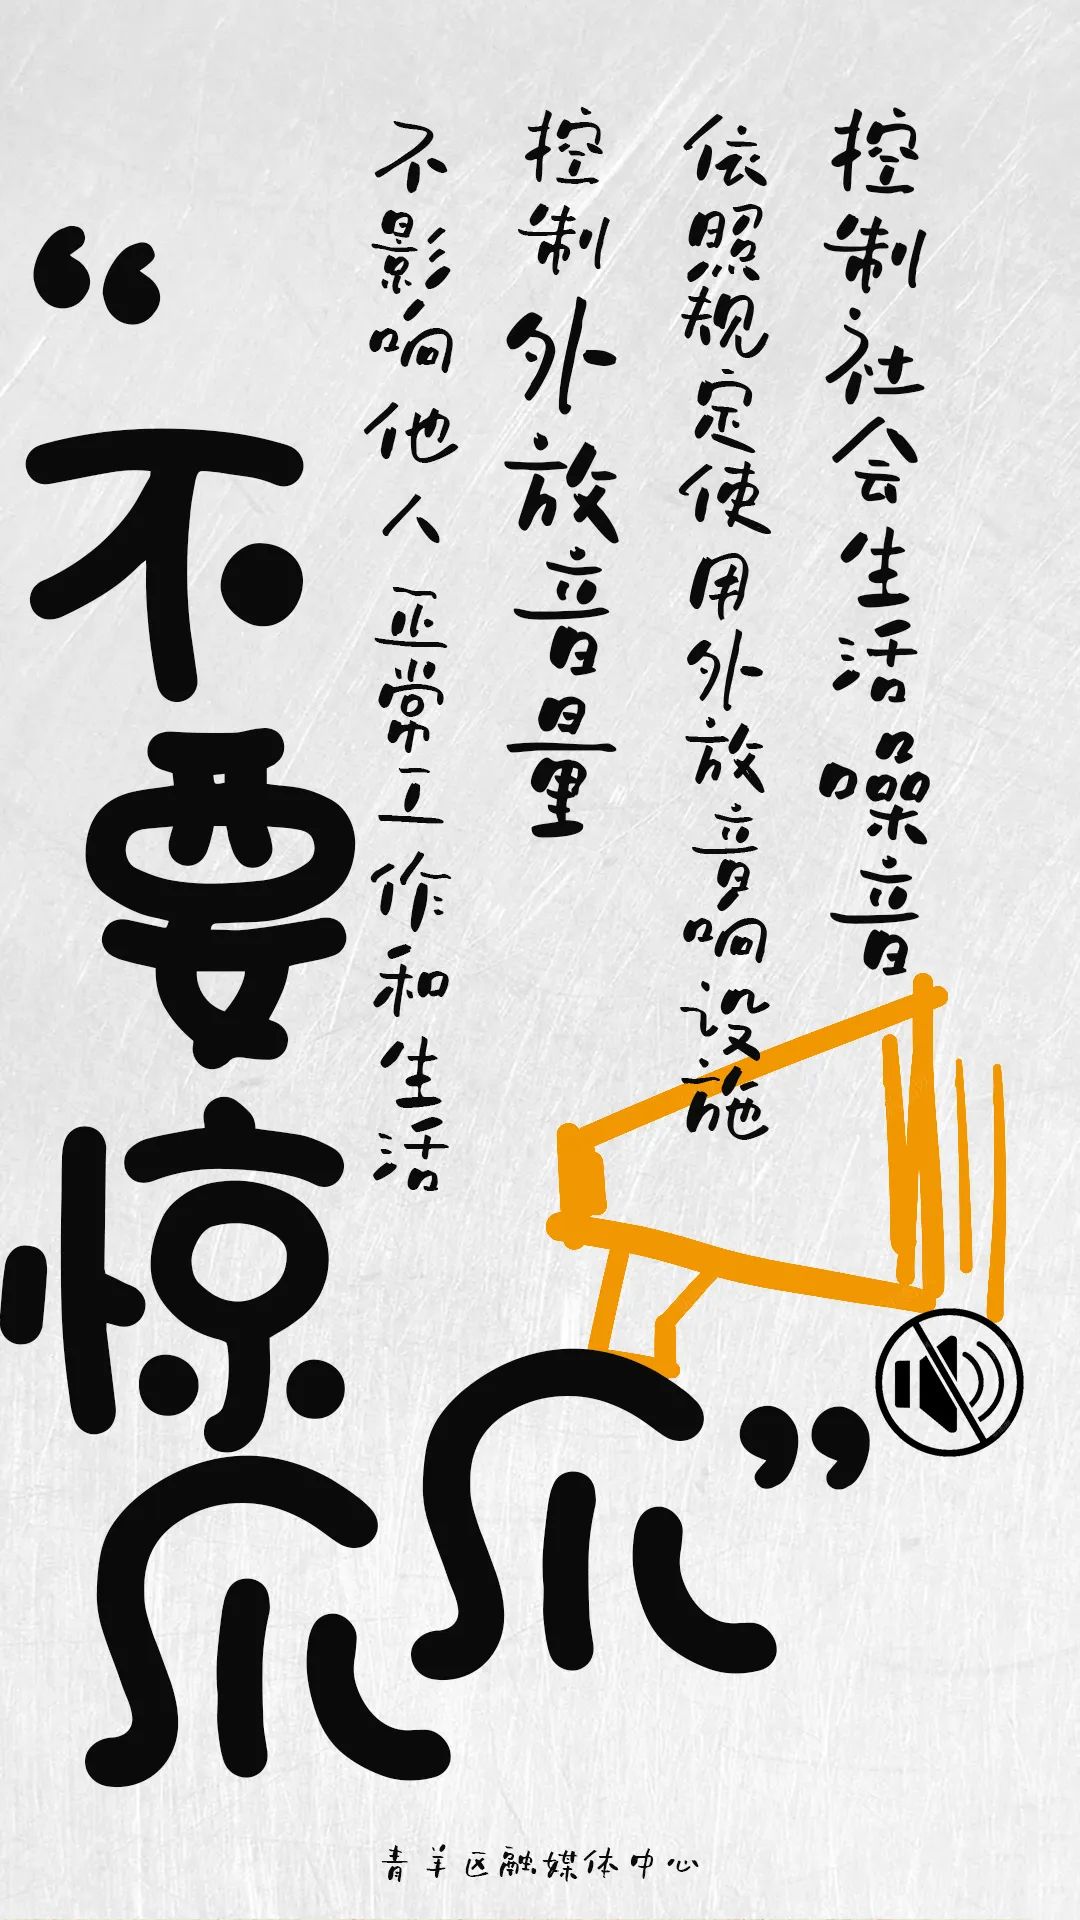 控制社会生活噪音
依照规定使用外放音响设施
控制外放音量
不影响他人正常工作和生活
“不要惊爪爪”
青羊区融媒体中心